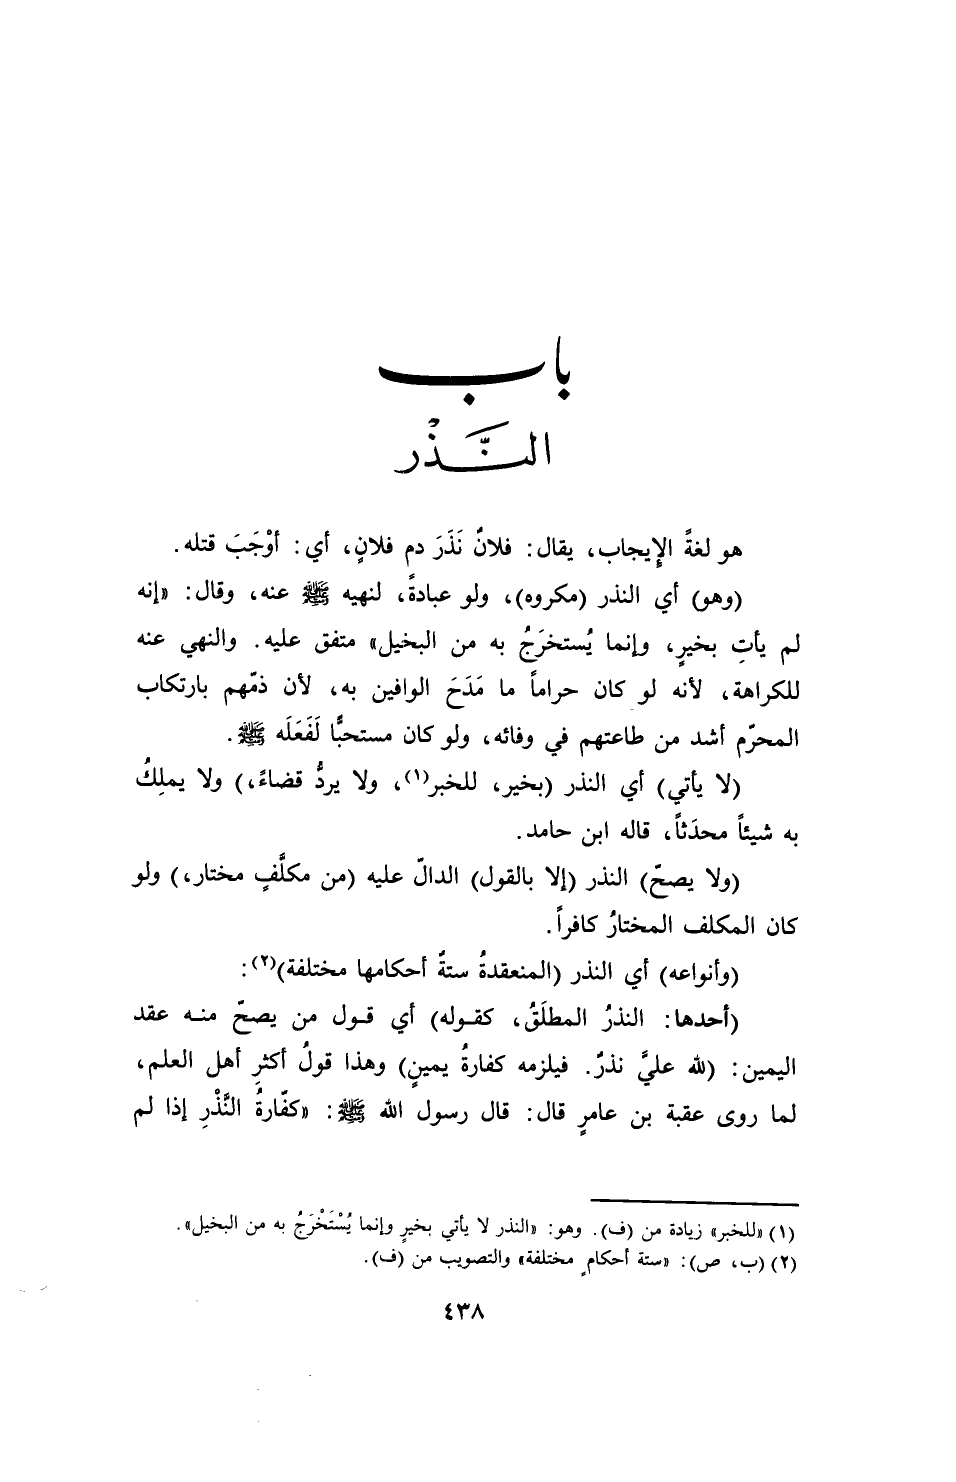 باب
النَّذْر
هو لغةً الإِيجاب، يقال: فلانٌ نَذَرَ دم فلانٍ، أي: أوْجَبَ قتله.
(وهو) أي النذر (مكروه)، ولو عبادةً، لنهيه ﷺ عنه، وقال: «إنه
لم يأتِ بخيرٍ، وإنما يُستخرَجُ به من البخيل» متفق عليه. والنهي عنه
للكراهة، لأنه لو كان حراماً ما مَدَحَ الوافين به، لأن ذمّهم بارتكاب
المحرّم أشد من طاعتهم في وفائه، ولو كان مستحبًّا لَفَعَلَه ﷺ.
(لا يأتي) أي النذر (بخير، للخبر(١)، ولا يردُّ قضاءً،) ولا يملِكُ
به شيئاً محدَثاً، قاله ابن حامد.
(ولا يصحّ) النذر (إلا بالقول) الدالّ عليه (من مكلَّفٍ مختار،) ولو
كان المكلف المختارُ كافراً.
(وأنواعه) أي النذر (المنعقدةُ ستةٌ أحكامها مختلفة)(٢):
(أحدها: النذرُ المطلَقُ، كقوله) أي قول من يصحّ منه عقد
اليمين: (لله عليَّ نذرٌ. فيلزمه كفارةُ يمينٍ) وهذا قولُ أكثرِ أهل العلم،
لما روى عقبة بن عامرٍ قال: قال رسول الله ﷺ: «كفّارةُ النَّذْرِ إذا لم
(١) «للخبر» زيادة من (ف). وهو: «النذر لا يأتي بخيرٍ وإنما يُسْتَخْرَجُ به من البخيل».
(٢) (ب، ص): «ستة أحكامٍ مختلفة» والتصويب من (ف).
٤٣٨